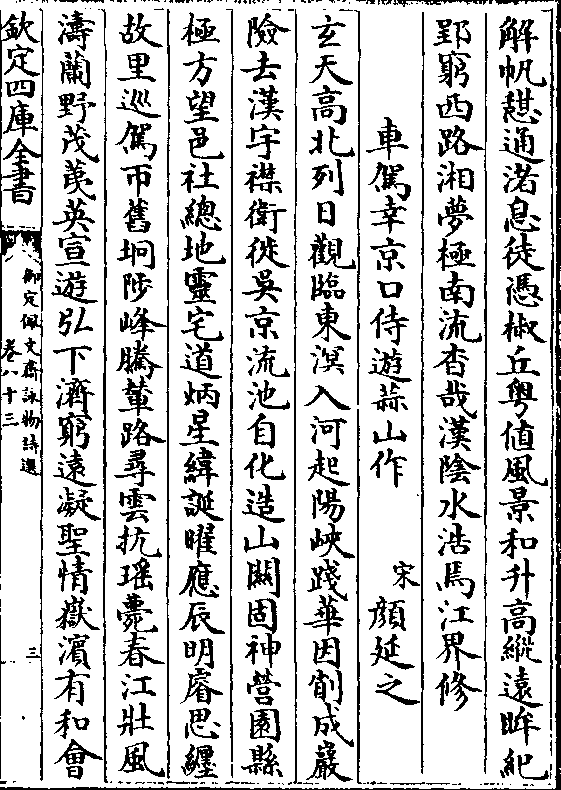 解帆憇通渚息徒憑椒丘粤值風景和升高縱遠眸紀
郢窮西路湘夢極南流杳哉漢陰水浩焉江界修
車駕幸京口侍遊蒜山作 宋 顔延之
玄天高北列日觀臨東溟入河起陽峽踐華因削成巖
險去漢宇襟衛徙吳京流池自化造山關固神營園縣
極方望邑社總地靈宅道炳星緯誕曜應辰明睿思纒
故里巡駕帀舊坰陟峰騰輦路尋雲抗瑶甍春江壯風
濤蘭野茂荑英宣遊弘下濟窮遠凝聖情嶽濱有和會
欽定四庫全書
御定佩文齋詠物詩選
卷八十三
三